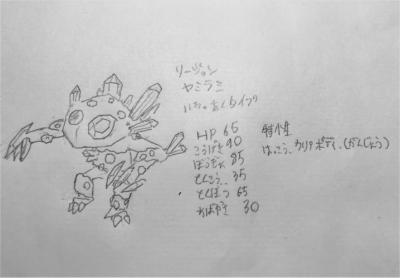 リージョン
ヤミラミ
いわ・あくタイプ
HP 65
こうげき 90
ぼうぎょ 85
とくこう 35
とくぼう 65
すばやさ 30
特性
はっこう、クリアボディ、(がんじょう)